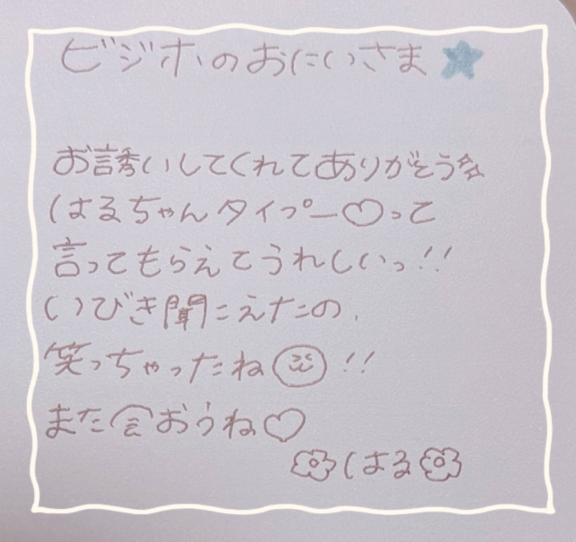 ビジホのおにいさま★
お誘いしてくれてありがそう☆
はるちゃんタイプー♡って
言ってもらえてうれしいっ!!
いびき聞こえたの、
笑っちゃったね!!
また会おうね♡
はる